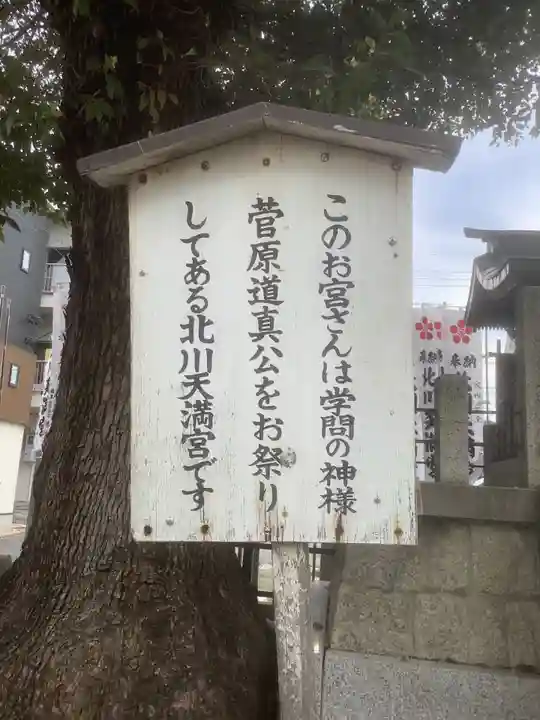 このお宮さんは学問の神様
菅原道真公をお祭り
してある北川天満宮です
奉納
奉納
北川